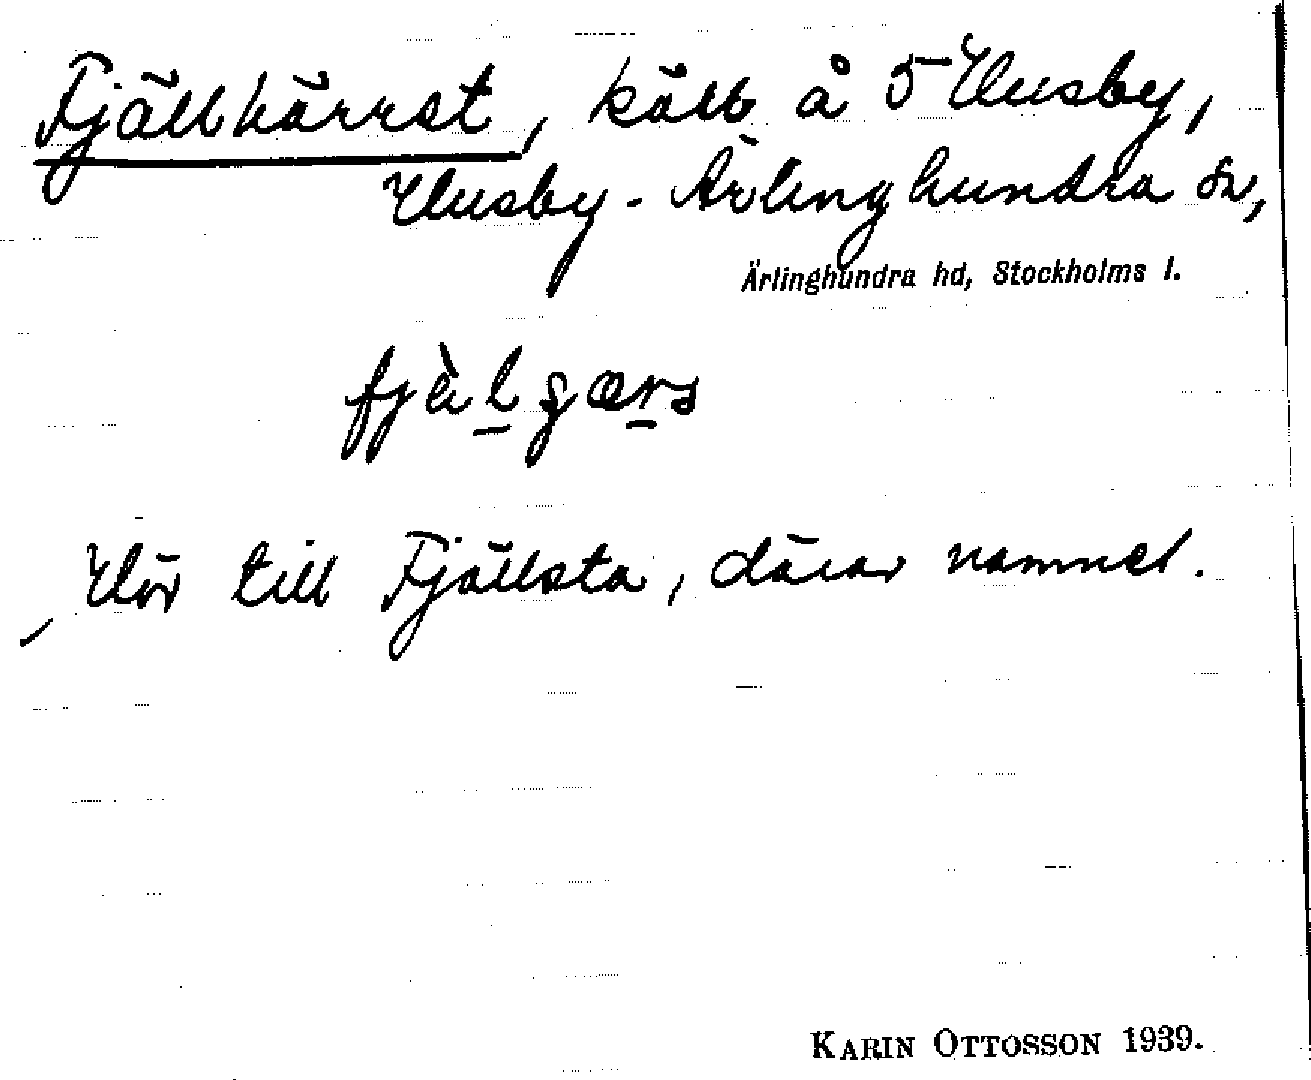 Fjällkärret, källa å 5 Husby,
Husby-Ärlinghundra sn,
Ärlinghundra hd, Stockholms l.
fjälgærs
Hör till Fjällsta, därav namnet.
KARIN OTTOSSON 1939.